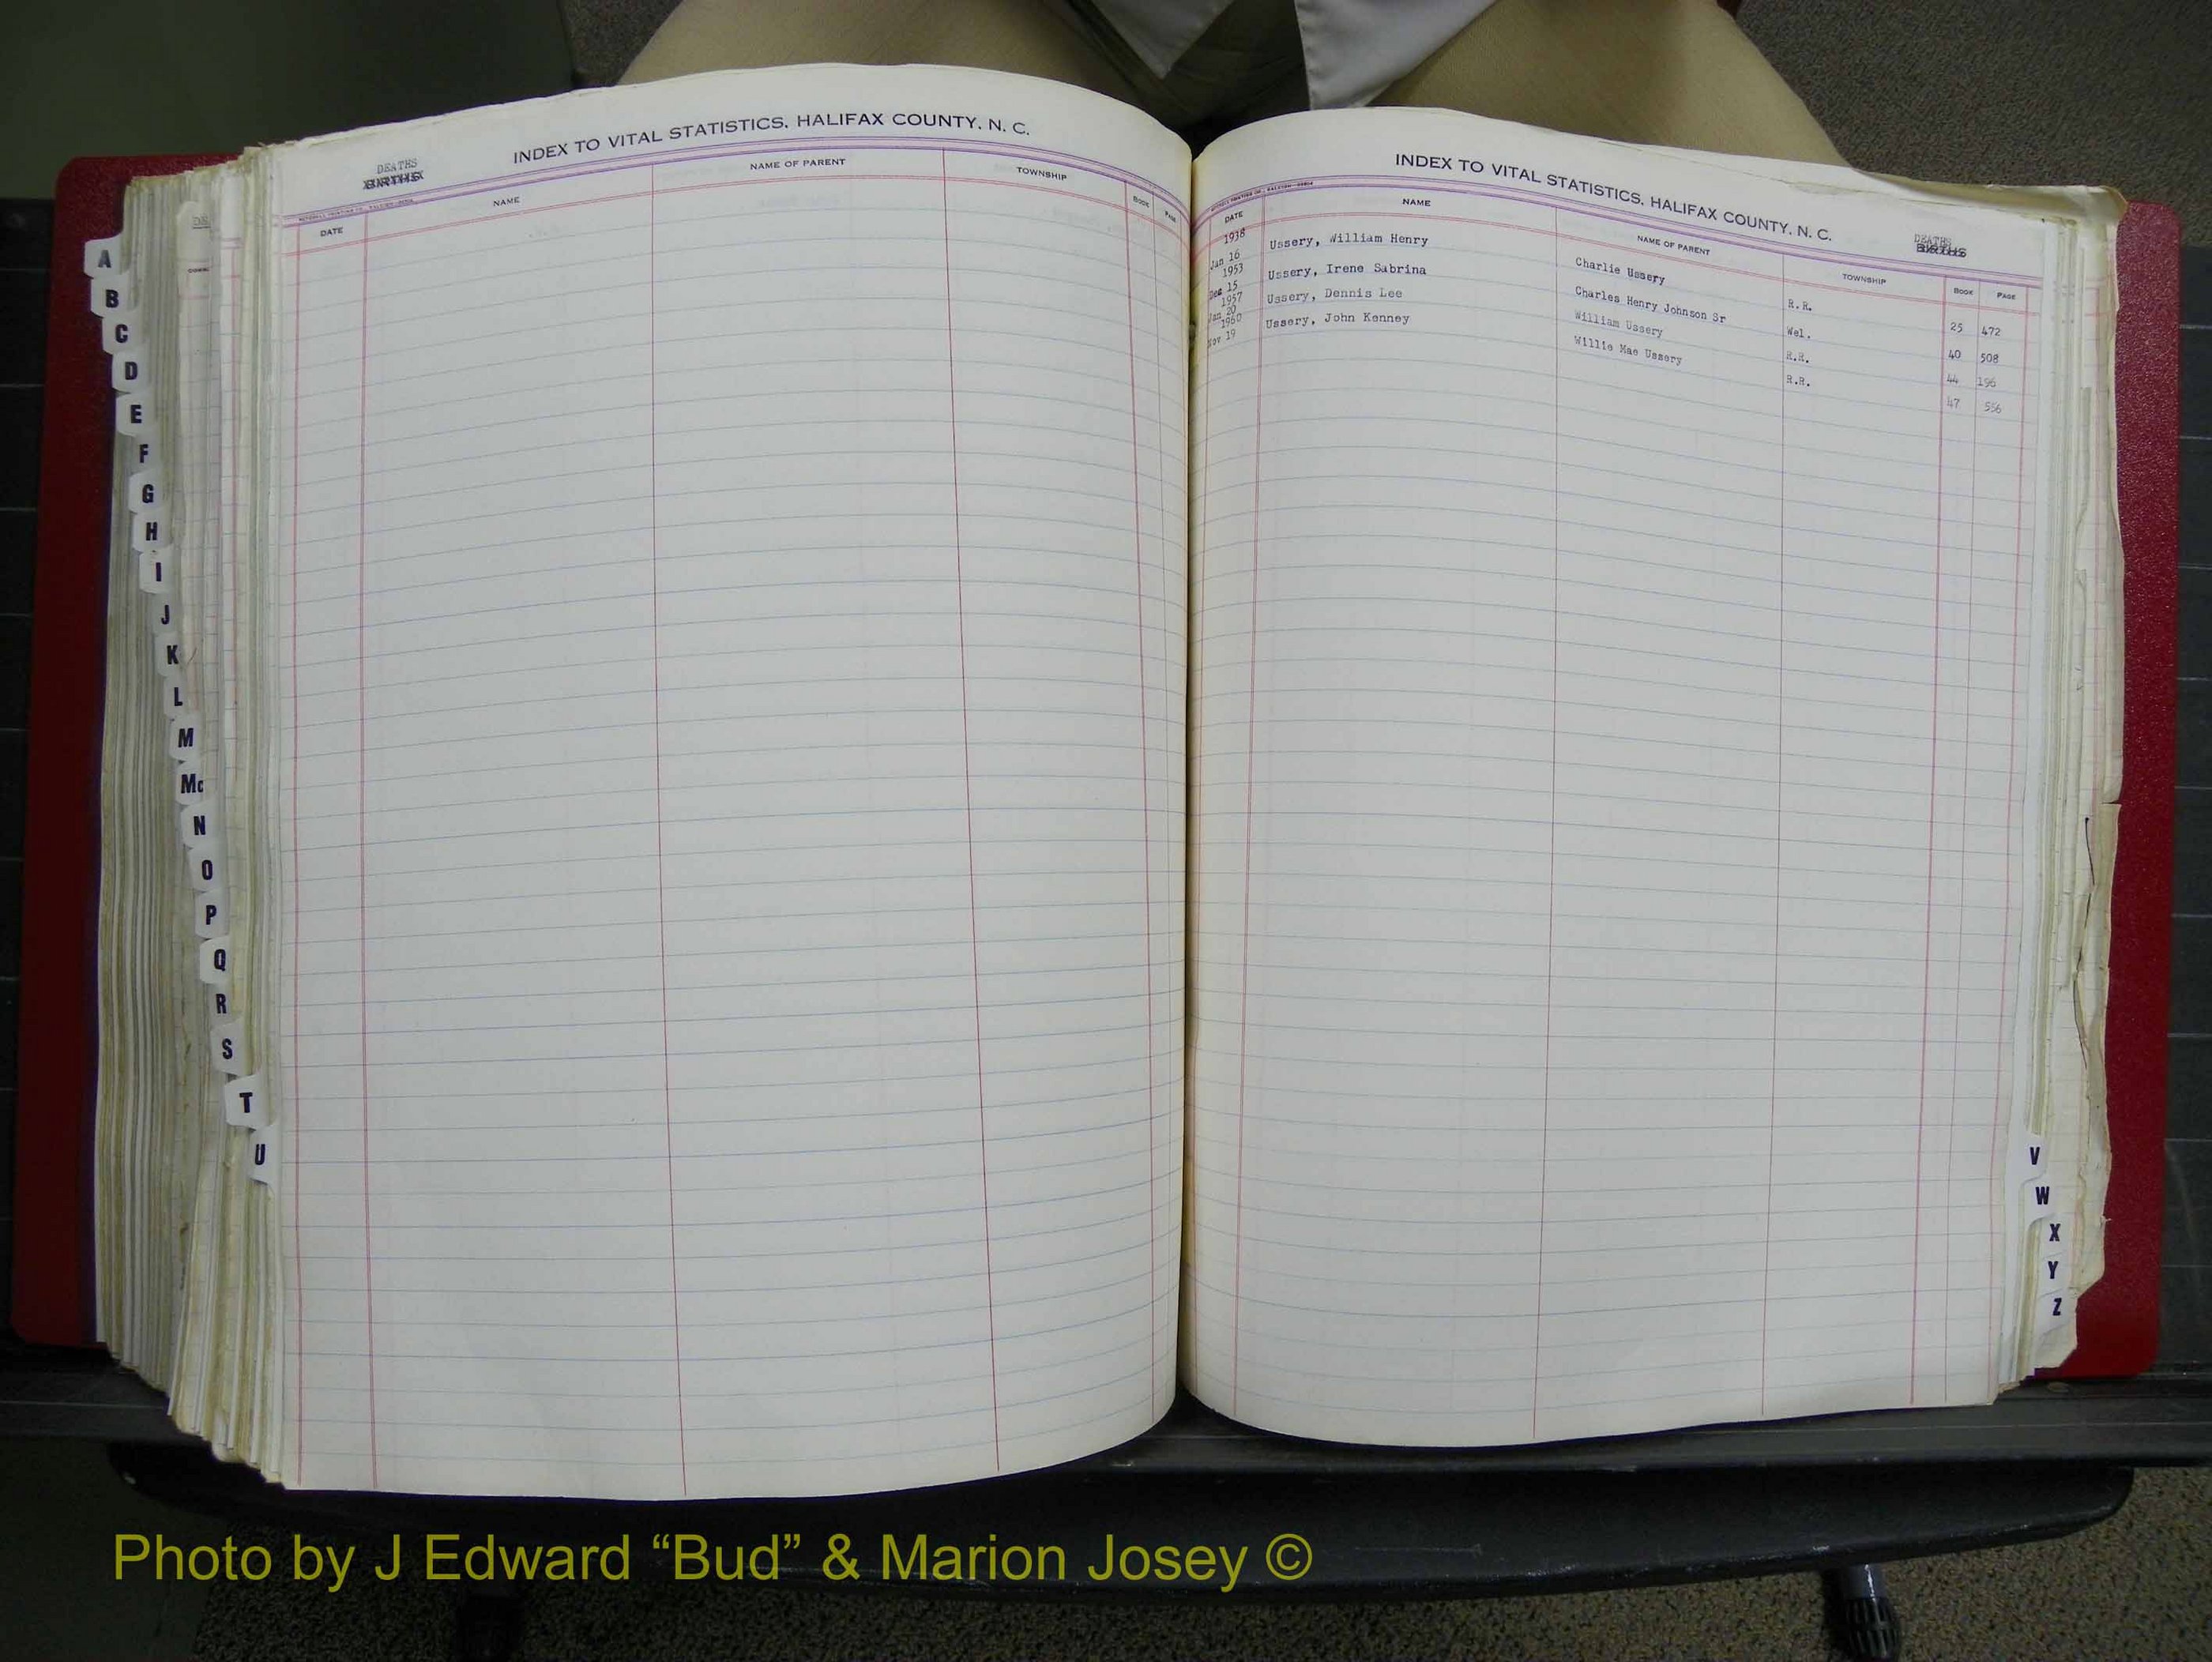 INDEX TO VITAL STATISTICS, HALIFAX COUNTY, N. C.
DEATHS
BIRTHS
NAME
NAME OF PARENT
TOWNSHIP
BOOK
PAGE
DATE
INDEX TO VITAL STATISTICS, HALIFAX COUNTY, N. C.
DEATHS
BIRTHS
DATE
NAME
NAME OF PARENT
TOWNSHIP
BOOK
PAGE
1938
Jan 16 Ussery, William Henry Charlie Ussery R.R. 25 472
1953
Dec 15 Ussery, Irene Sabrina Charles Henry Johnson Sr Wel. 40 508
1957
Jan 20 Ussery, Dennis Lee William Ussery R.R. 44 196
1960
Nov 19 Ussery, John Kenney Willie Mae Ussery R.R. 47 556
A
B
C
D
E
F
G
H
I
J
K
L
M
Mc
N
O
P
Q
R
S
T
U
V
W
X
Y
Z
Photo by J Edward “Bud” & Marion Josey ©